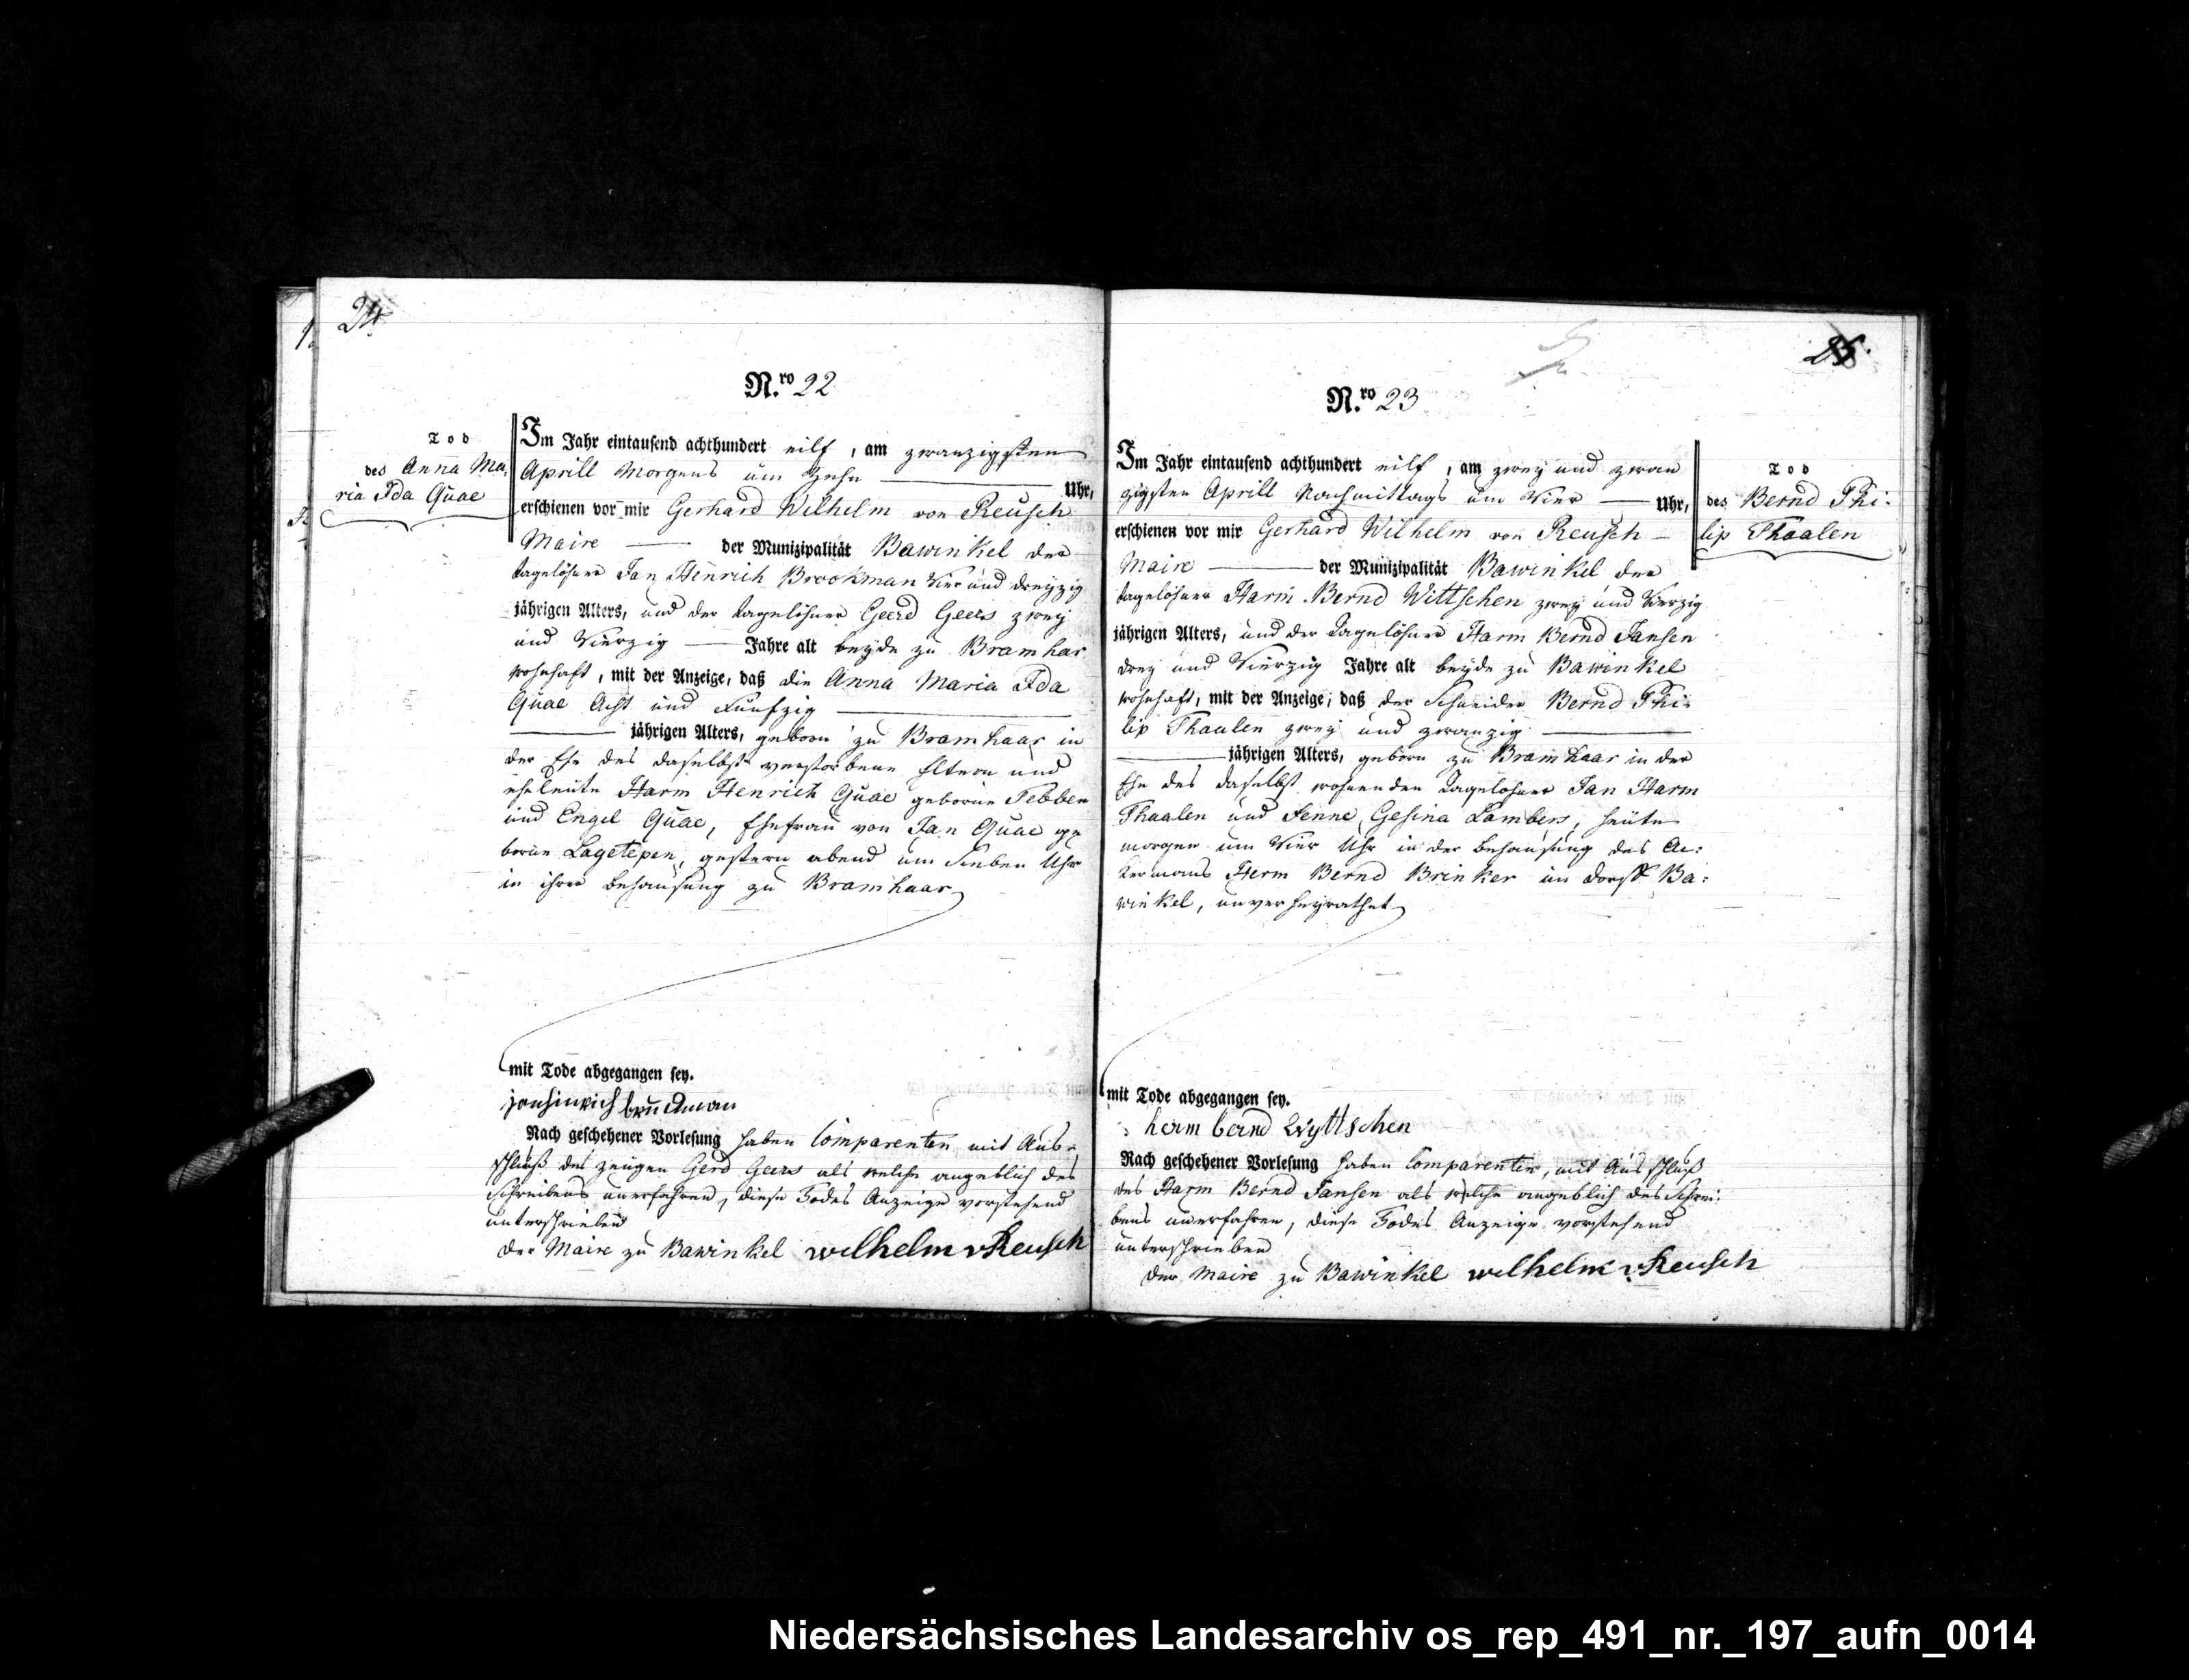 24.
N.ro 22
Tod
des Anna Ma,
ria Ida Quae
Im Jahr eintausend achthundert eilf, am zwanzigsten
Aprill Morgens um Zehn Uhr,
erschienen vor mir Gerhard Wilhelm von Reusch
Maire der Munizipalität Bawinkel der
tagelöhner Jan Henrich Brookman Vier und dreyzig
jährigen Alters, und der tagelöhner Geerd Geers zwey
und Vierzig Jahre alt beyde zu Bramhar
wohnhaft, mit der Anzeige, daß die Anna Maria Ida
Quae Acht und Fünfzig
jährigen Alters, geborn zu Bramhaar in
der Ehe des daselbst verstorbene Eltern und
eheleute Harm Henrich Quae geborne Tebben
und Engel Quae, Ehefrau von Jan Quae ge
borne Lagetepen, gestern abend um Sieben Uhr
in ihrer behausung zu Bramhaar
mit Tode abgegangen sey.
janhinrich bruckman
Nach geschehener Vorlesung haben Comparenten mit Aus-
schluß des zeugen Gerd Geers als welche angeblich des
Schreibens unerfahren, diese Todes Anzeige vorstehend
unterschrieben
der Maire zu Bawinkel wilhelm v Reusch
25.
N.ro 23
Tod
des Bernd Phi-
lip Thaalen
Im Jahr eintausend achthundert eilf, am zwey und zwan
zigsten Aprill Nachmittags um Vier Uhr,
erschienen vor mir Gerhard Wilhelm von Reusch
Maire der Munizipalität Bawinkel der
tagelöhner Harm Bernd Wittschen zwey und Vierzig
jährigen Alters, und der Tagelöhner Harm Bernd Jansen
drey und Vierzig Jahre alt beyde zu Bawinkel
wohnhaft, mit der Anzeige, daß der Schneider Bernd Phi-
lip Thaalen zwey und zwanzig
jährigen Alters, geborn zu Bramhaar in der
Ehe des daselbst wohnenden Tagelöhner Jan Harm
Thaalen und Fenne Gesina Lambers, heute
morgen um Vier Uhr in der behausung des Ac:
kermans Herm Bernd Brinker im dorff Ba:
winkel, unverheyrathet
mit Tode abgegangen sey.
herm bernd Wyttschen
Nach geschehener Vorlesung haben Comparenten, mit Ausschluß
des Harm Bernd Jansen als welche angeblich des Schrei:
bens unerfahren, diese Todes Anzeige vorstehend
unterschrieben
der Maire zu Bawinkel wilhelm v. Reusch
Niedersächsisches Landesarchiv os_rep_491_nr._197_aufn_0014